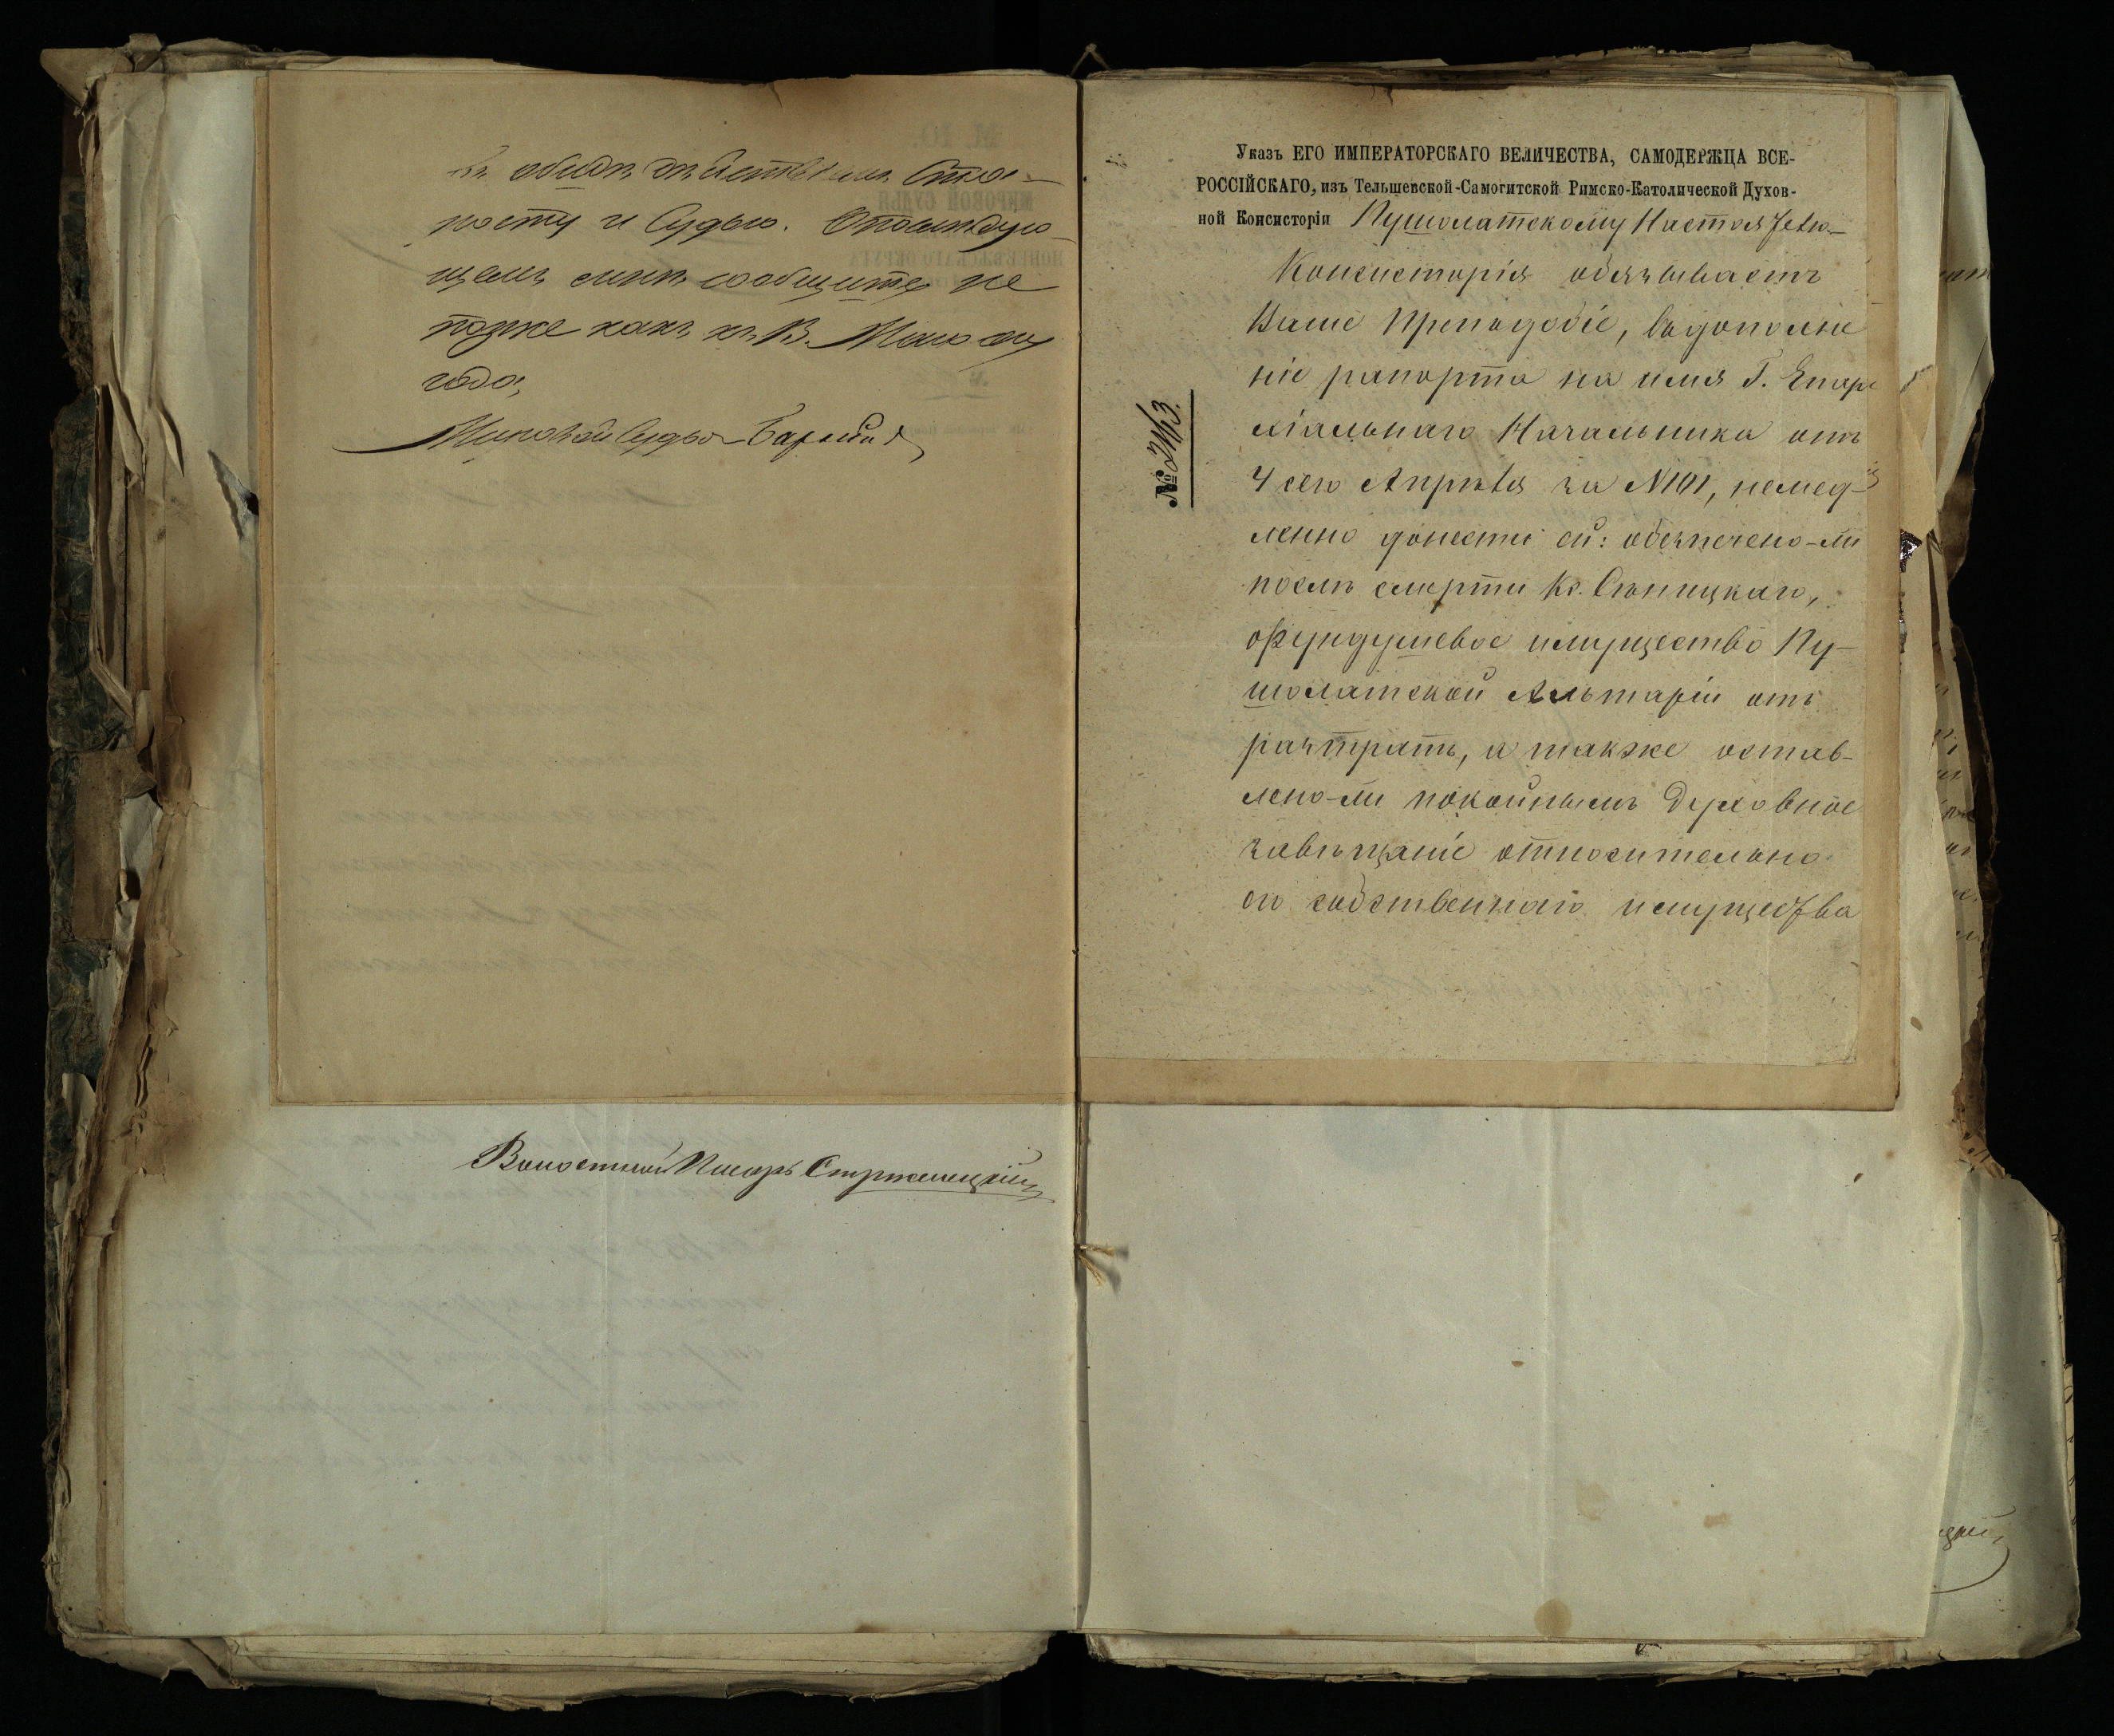 въ обидѣ дѣйствіемъ Ста-
росту и Судью. О послѣдую-
щемъ мнѣ сообщите не
позже какъ къ 13 Мая с/г
года,
Мировой Судья
Волостной Писарь Стржелецкій
Указъ ЕГО ИМПЕРАТОРСКАГО ВЕЛИЧЕСТВА, САМОДЕРЖЦА ВСЕ-
РОССІЙСКАГО, изъ Тельшевской-Самогитской Римско-Католической Духов-
ной Консисторіи Пушолатскому Настоятелю
Консисторія обязываетъ
Ваше Преподобіе, въ дополне
ніе рапорта на имя Г. Епар
хіальнаго Начальника отъ
4 сего Апрѣля за N101, немед-
ленно донести ей: обезпечено-ли
послѣ смерти Кс. Сѣницкаго,
фундушевое имущество Пу-
шолатской Альтаріи отъ
растратъ, а также остав-
лено-ли покойнымъ Духовное
завѣщаніе относительно
его собственнаго имущества